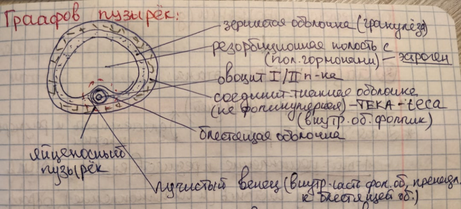 Граафов пузырёк:
зернистая оболочка (гранулёза)
резорбционная полость с
(пол. гормонами) – эстроген
овоцит I/II п-ка
соединит. тканная оболочка
(не фолликулярная) – ТЕКА – teca
(внутр. об. фоллик)
блестящая оболочка
яйценосный
пузырёк
лучистый венец (внутр. часть фол. об,
к блестящей об.)